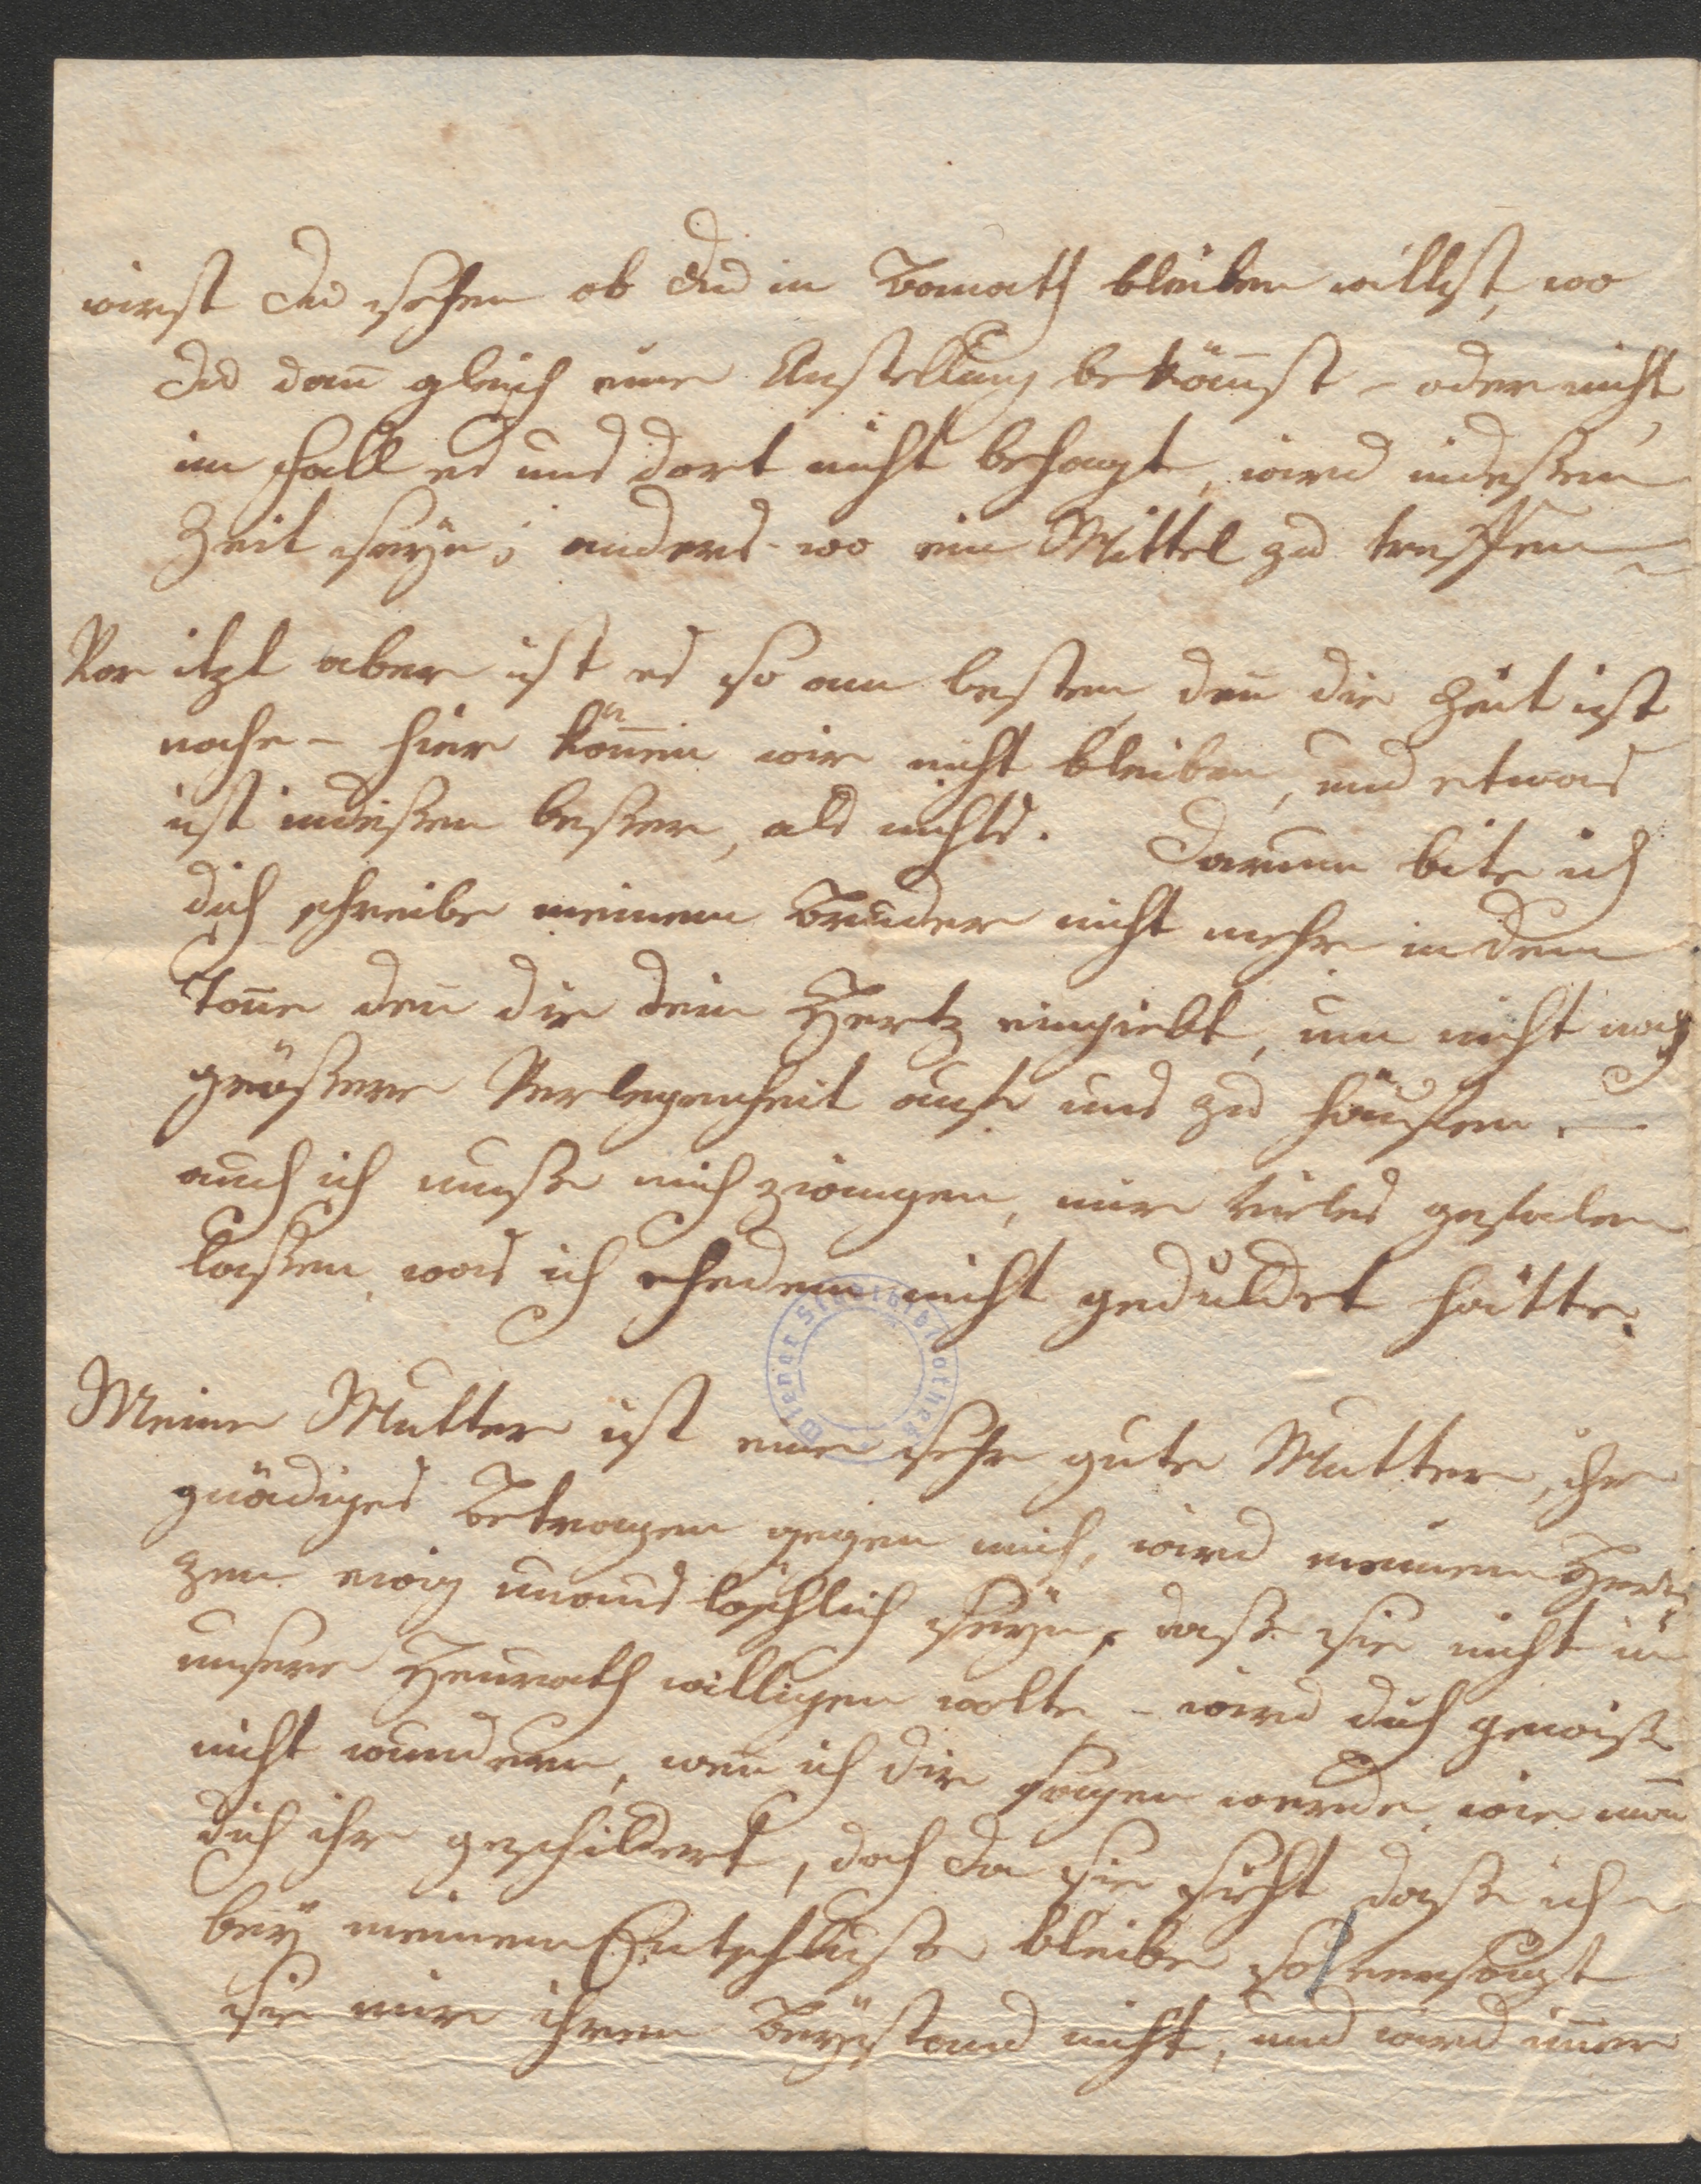 wirst du sehen ob du in Banath bleiben willst, wo
du dan̄ gleich eine Anstellung beköm̄st – oder nicht
im Fall es uns dort nicht behagt, wird indessen
Zeit seÿn; anders-wo ein Mittel zu treffen
Vor itzt aber ist es so am besten, den̄ die Zeit ist
nahe – hier kön̄en wir nicht bleiben, und etwas
ist indessen besser, als nichts. Darum bite ich
dich schreibe meinem Bruder nicht mehr in dem
Tone den dir dein Hertz eingiebt, um nicht noch
größere Verlegenheit auf uns zu häufen. –
auch ich muße mich zwingen, mir vieles gefalen
laßen, was ich ehedem nicht geduldet hätte.
Wiener Stadtbibliothek
Meine Mutter ist eine sehr gute Mutter, ihr
gnädiges Betragen gegen mich, wird meinem Her-
zen ewig unauslöschlich seÿn, daß sie nicht in
unsere Heurath willigen wolte – wird dich gewiß
nicht wundern, wen̄ ich dir sagen werde, wie man
dich ihr geschildert, doch da sie sieht daß ich
beÿ meinem Entschluße bleibe so versagt
sie mir ihren Beÿstand nicht, und wird im̄er